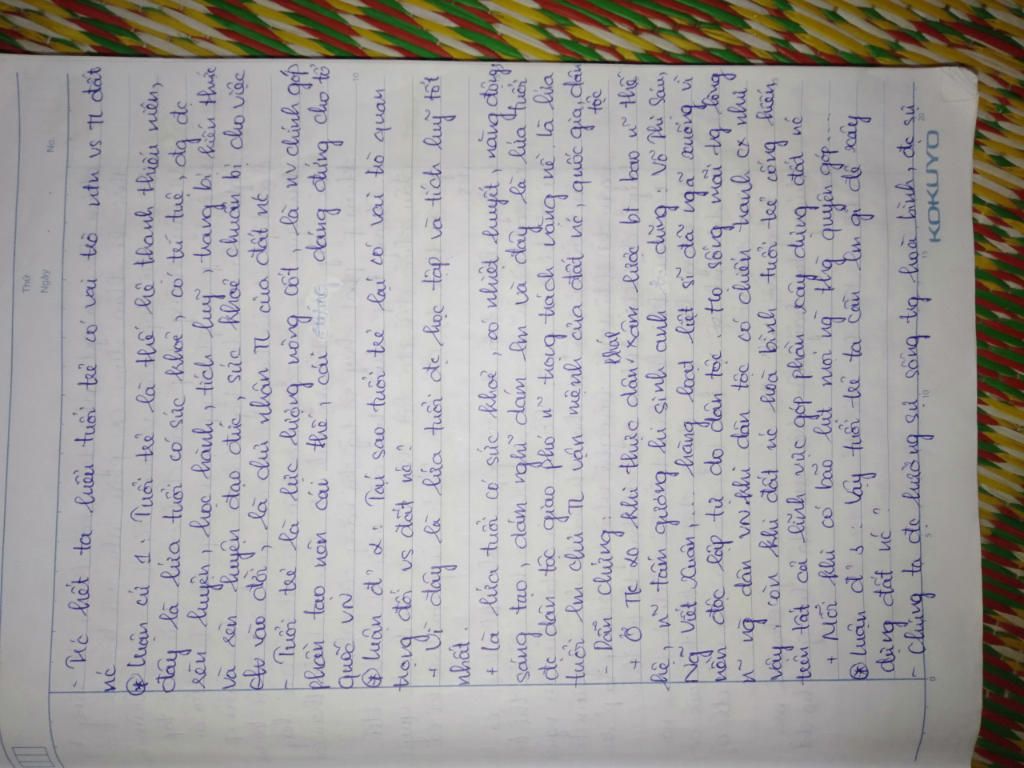 Thứ
Ngày
No.
- Trc hết ta hiểu tuổi trẻ có vai trò ntn vs TL đất
nc
* Luận cứ 1: Tuổi trẻ là thế hệ thanh thiếu niên,
đây là lứa tuổi có sức khoẻ, có trí tuệ, đg đc
rèn luyện, học hành, tích luỹ, trang bị kiến thức
và rèn luyện đạo đức, sức khoẻ chuẩn bị cho việc
vào đời, là chủ nhân TL của đất nc
- Tuổi trẻ là lực lượng nòng cốt, là nv chính góp
phần tạo nên cái thế, cái dáng đứng cho tổ
quốc VN
* Luận đ' 2: Tại sao tuổi trẻ lại có vai trò quan
trọng đối vs đất nc?
+ Vì đây là lứa tuổi đc học tập và tích luỹ tốt
nhất.
+ Là lứa tuổi có sức khoẻ, có nhiệt huyết, năng động,
sáng tạo, dám nghĩ dám lm và đây là lứa tuổi
đc dân tộc giao phó n~ trọng trách nặng nề. là lứa
tuổi lm chủ TL vận mệnh của đất nc, quốc gia, dân
tộc
- Dẫn chứng:
+ Ở TK 20 khi thực dân Pháp xâm lược bt bao n~ thế
hệ, n~ tấn gương hi sinh anh dũng: Võ Thị Sáu,
Ng~ Viết Xuân,... hàng loạt liệt sĩ đã ngã xuống vì
nền độc lập tự do dân tộc. Họ sống mãi tg lòng
n~ ng dân VN. khi dân tộc có chiến tranh cx như
vậy, còn khi đất nc hoà bình tuổi trẻ cống hiến
trên tất cả lĩnh vực góp phần xây dựng đất nc
+ Mỗi khi có bão lũ mỗi ng quyên góp....
* Luận đ' 3: Vậy tuổi trẻ ta cần lm gì để xây
dựng đất nc?
- Chúng ta đc hưởng sự sống tg hoà bình, đc sự
KOKUYO
0
5
10
15
20